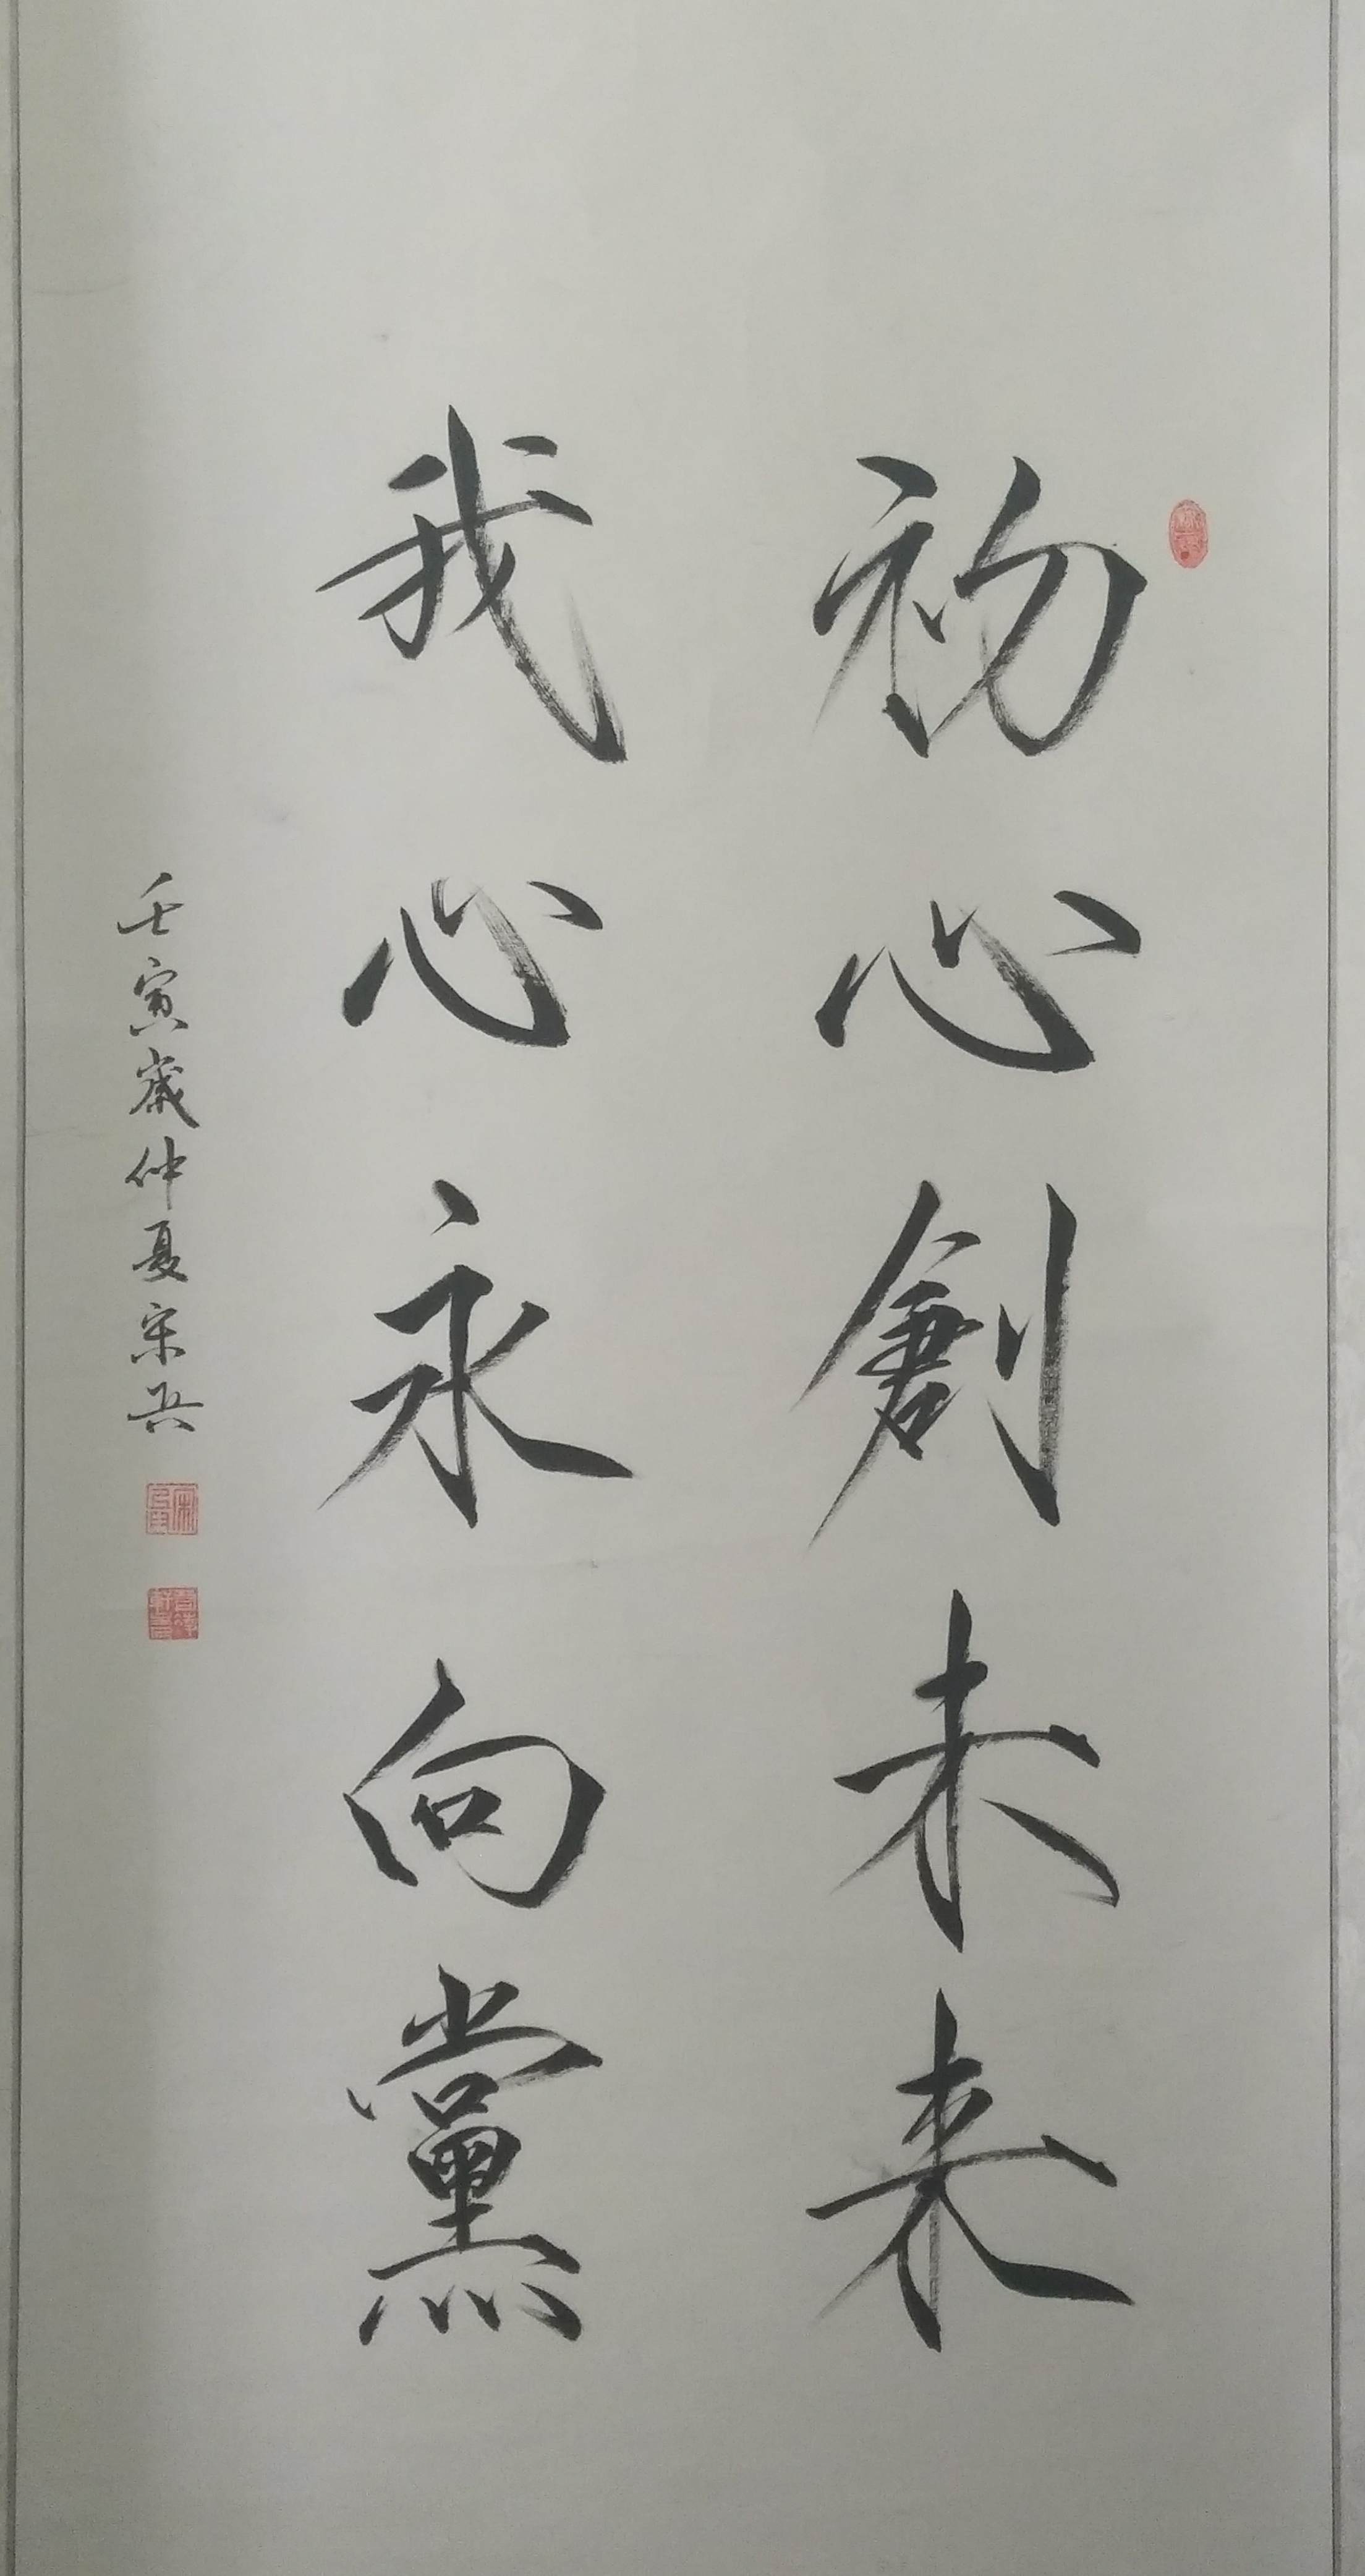 初心創未来
我心永向黨
壬寅歲仲夏宋兵